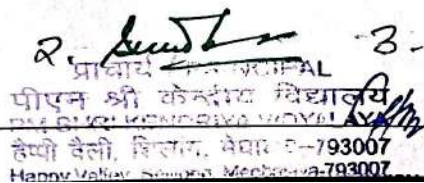 2. 3.
प्राचार्य PRINCIPAL
पीएम श्री केन्द्रीय विद्यालय
PM SHRI KENDRIYA VIDYALAYA
हैप्पी वैली, शिलांग, मेघालय-793007
Happy Valley, Shillong, Meghalaya-793007